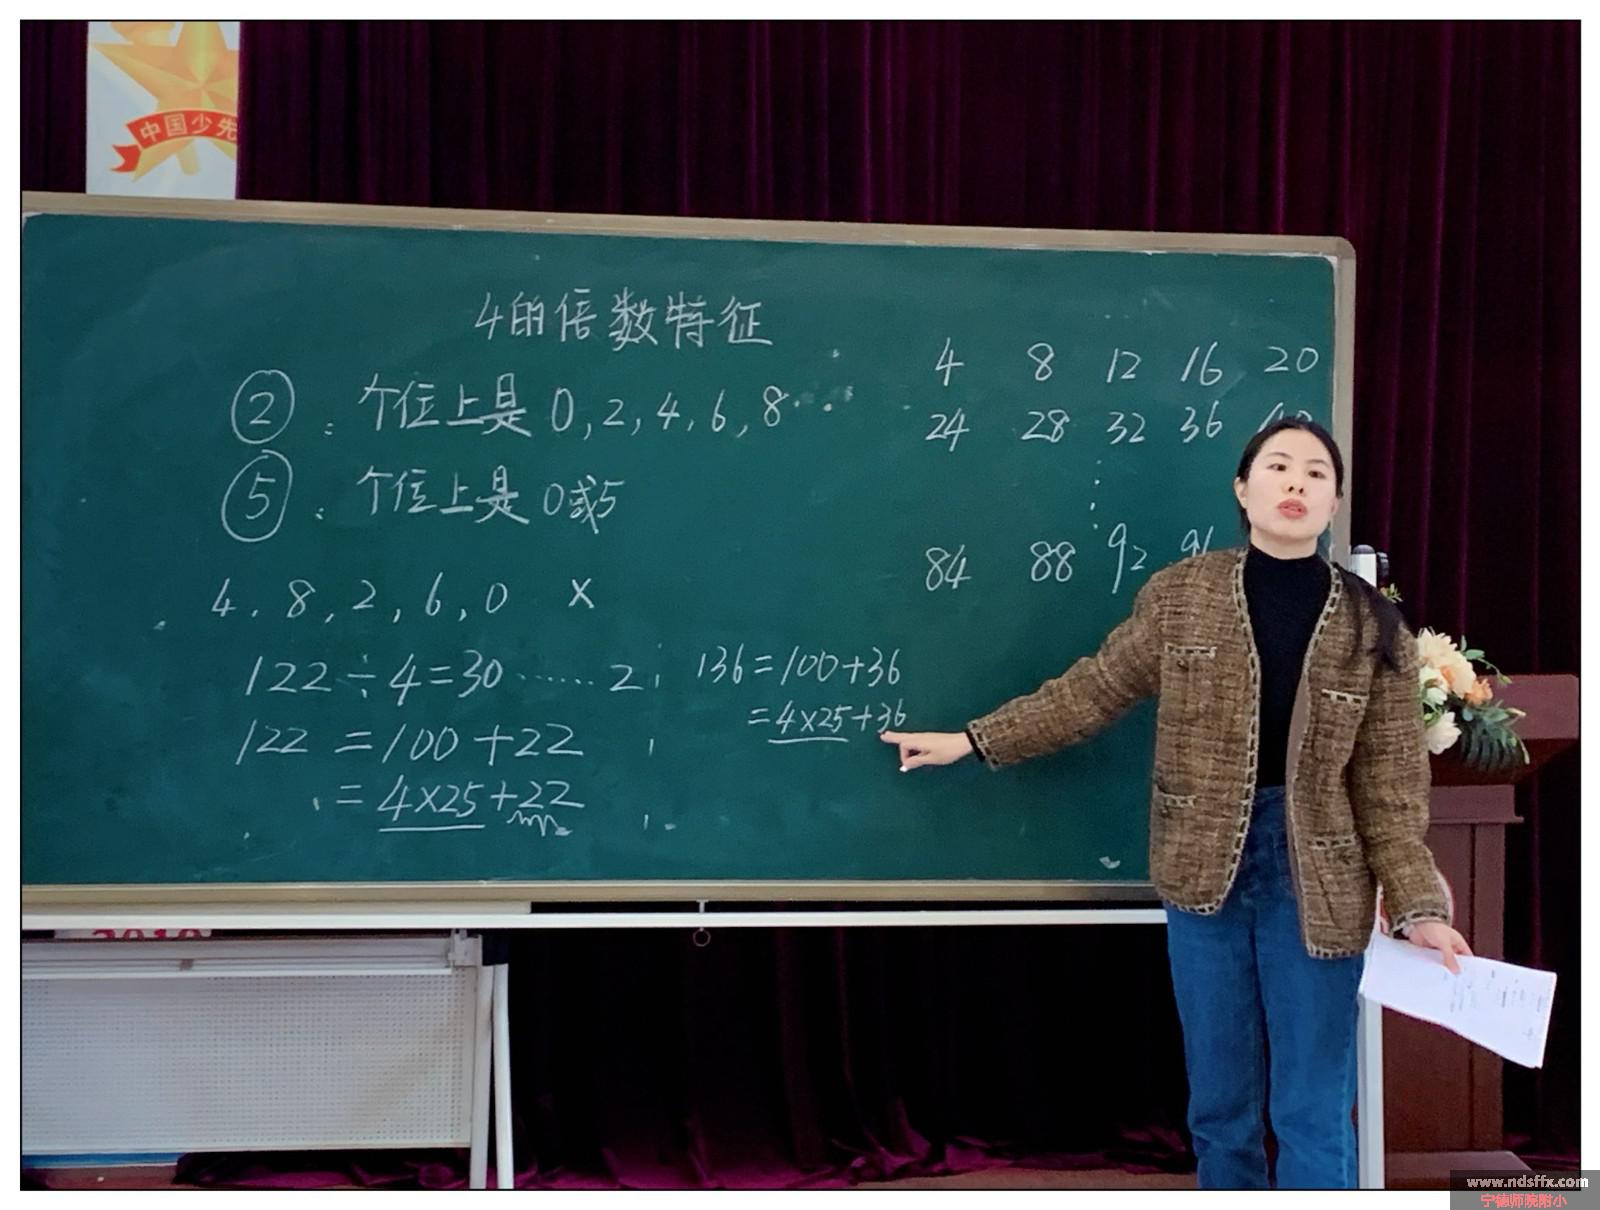 中国少先
4的倍数特征
②：个位上是 0,2,4,6,8
⑤：个位上是 0或5
4,8,2,6,0 ×
122÷4=30……2
122=100+22
=4×25+22
136=100+36
=4×25+36
4 8 12 16 20
24 28 32 36
⋮
84 88 92
www.ndsffx.com
宁德师院附小